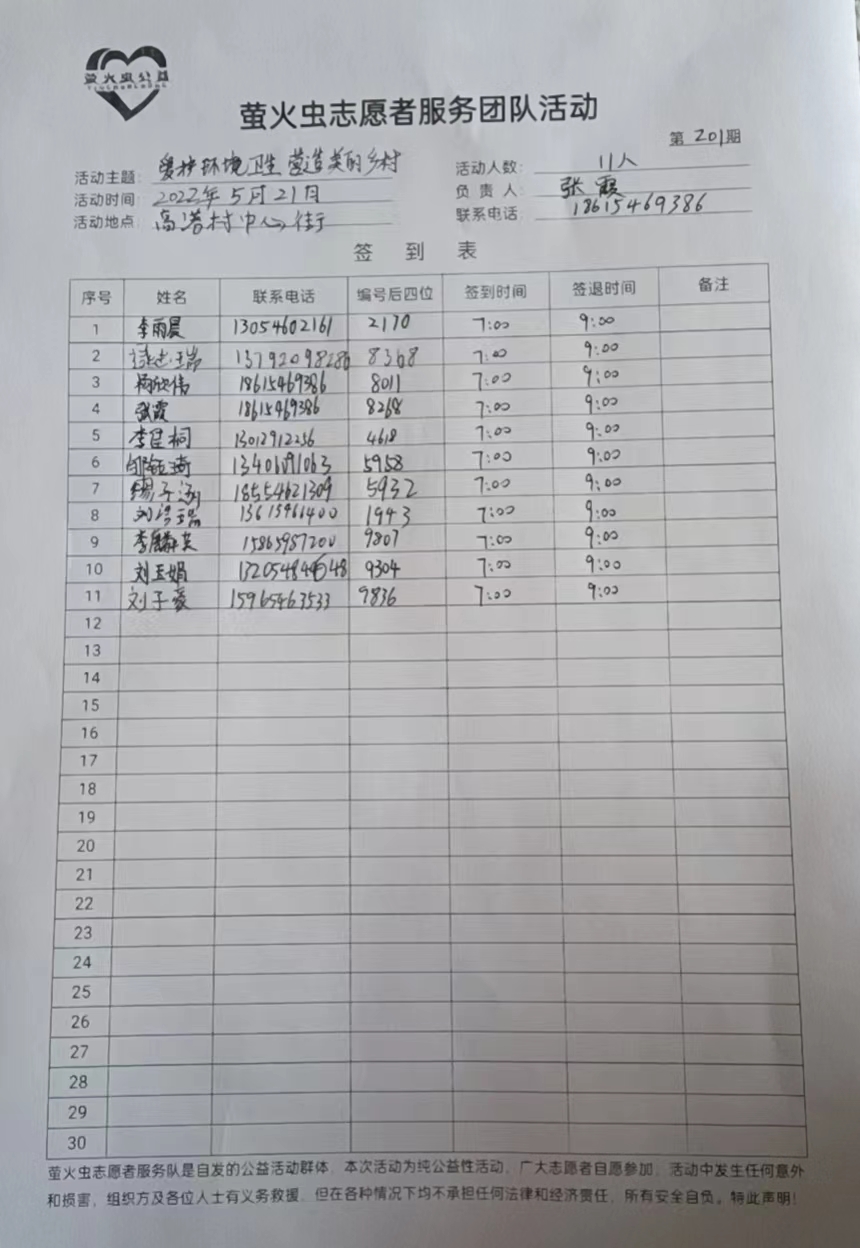 萤火虫公益
YINGHUOCHONG
萤火虫志愿者服务团队活动
第 201 期
活动主题: 爱护环境卫生 营造美丽乡村
活动人数: 11人
活动时间: 2022年5月21日
负责人: 张霞
活动地点: 高港村中心街
联系电话: 18615469386
签到表
序号 姓名 联系电话 编号后四位 签到时间 签退时间 备注
1 李雨晨 13054602161 2170 7:00 9:00
2 13792098286 8368 7:00 9:00
3 杨欣伟 18615469386 8011 7:00 9:00
4 张霞 18615469386 8268 7:00 9:00
5 李佳桐 13012912256 4618 7:00 9:00
6 5958 7:00 9:00
7 杨子涵 18554621309 5932 7:00 9:00
8 1943 7:00 9:00
9 李麟英 15865987200 9807 7:00 9:00
10 刘玉娟 9304 7:00 9:00
11 刘子豪 15965463533 9836 7:00 9:00
12
13
14
15
16
17
18
19
20
21
22
23
24
25
26
27
28
29
30
萤火虫志愿者服务队是自发的公益活动群体，本次活动为纯公益性活动，广大志愿者自愿参加，活动中发生任何意外
和损害，组织方及各位人士有义务救援，但在各种情况下均不承担任何法律和经济责任，所有安全自负。特此声明！